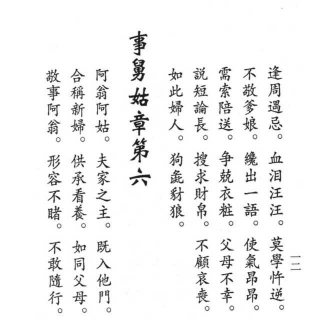 逢周遇忌。血泪汪汪。莫學忤逆。
不敬爹娘。纔出一語。使氣昂昂。
需索陪送。争競衣粧。父母不幸。
說短論長。搜求財帛。不顧哀喪。
如此婦人。狗彘豺狼。
事舅姑章第六
阿翁阿姑。夫家之主。既入他門。
合稱新婦。供承看養。如同父母。
敬事阿翁。形容不睹。不敢隨行。
一二